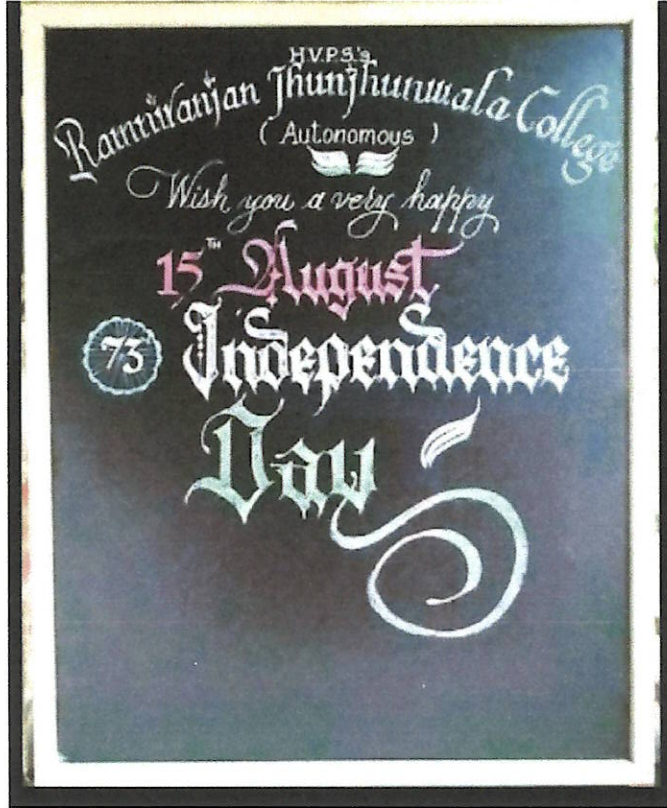 H.V.P.S.'s
Ramniranjan Jhunjhunwala College
( Autonomous )
Wish you a very happy
15TH August
73 Independence
Day